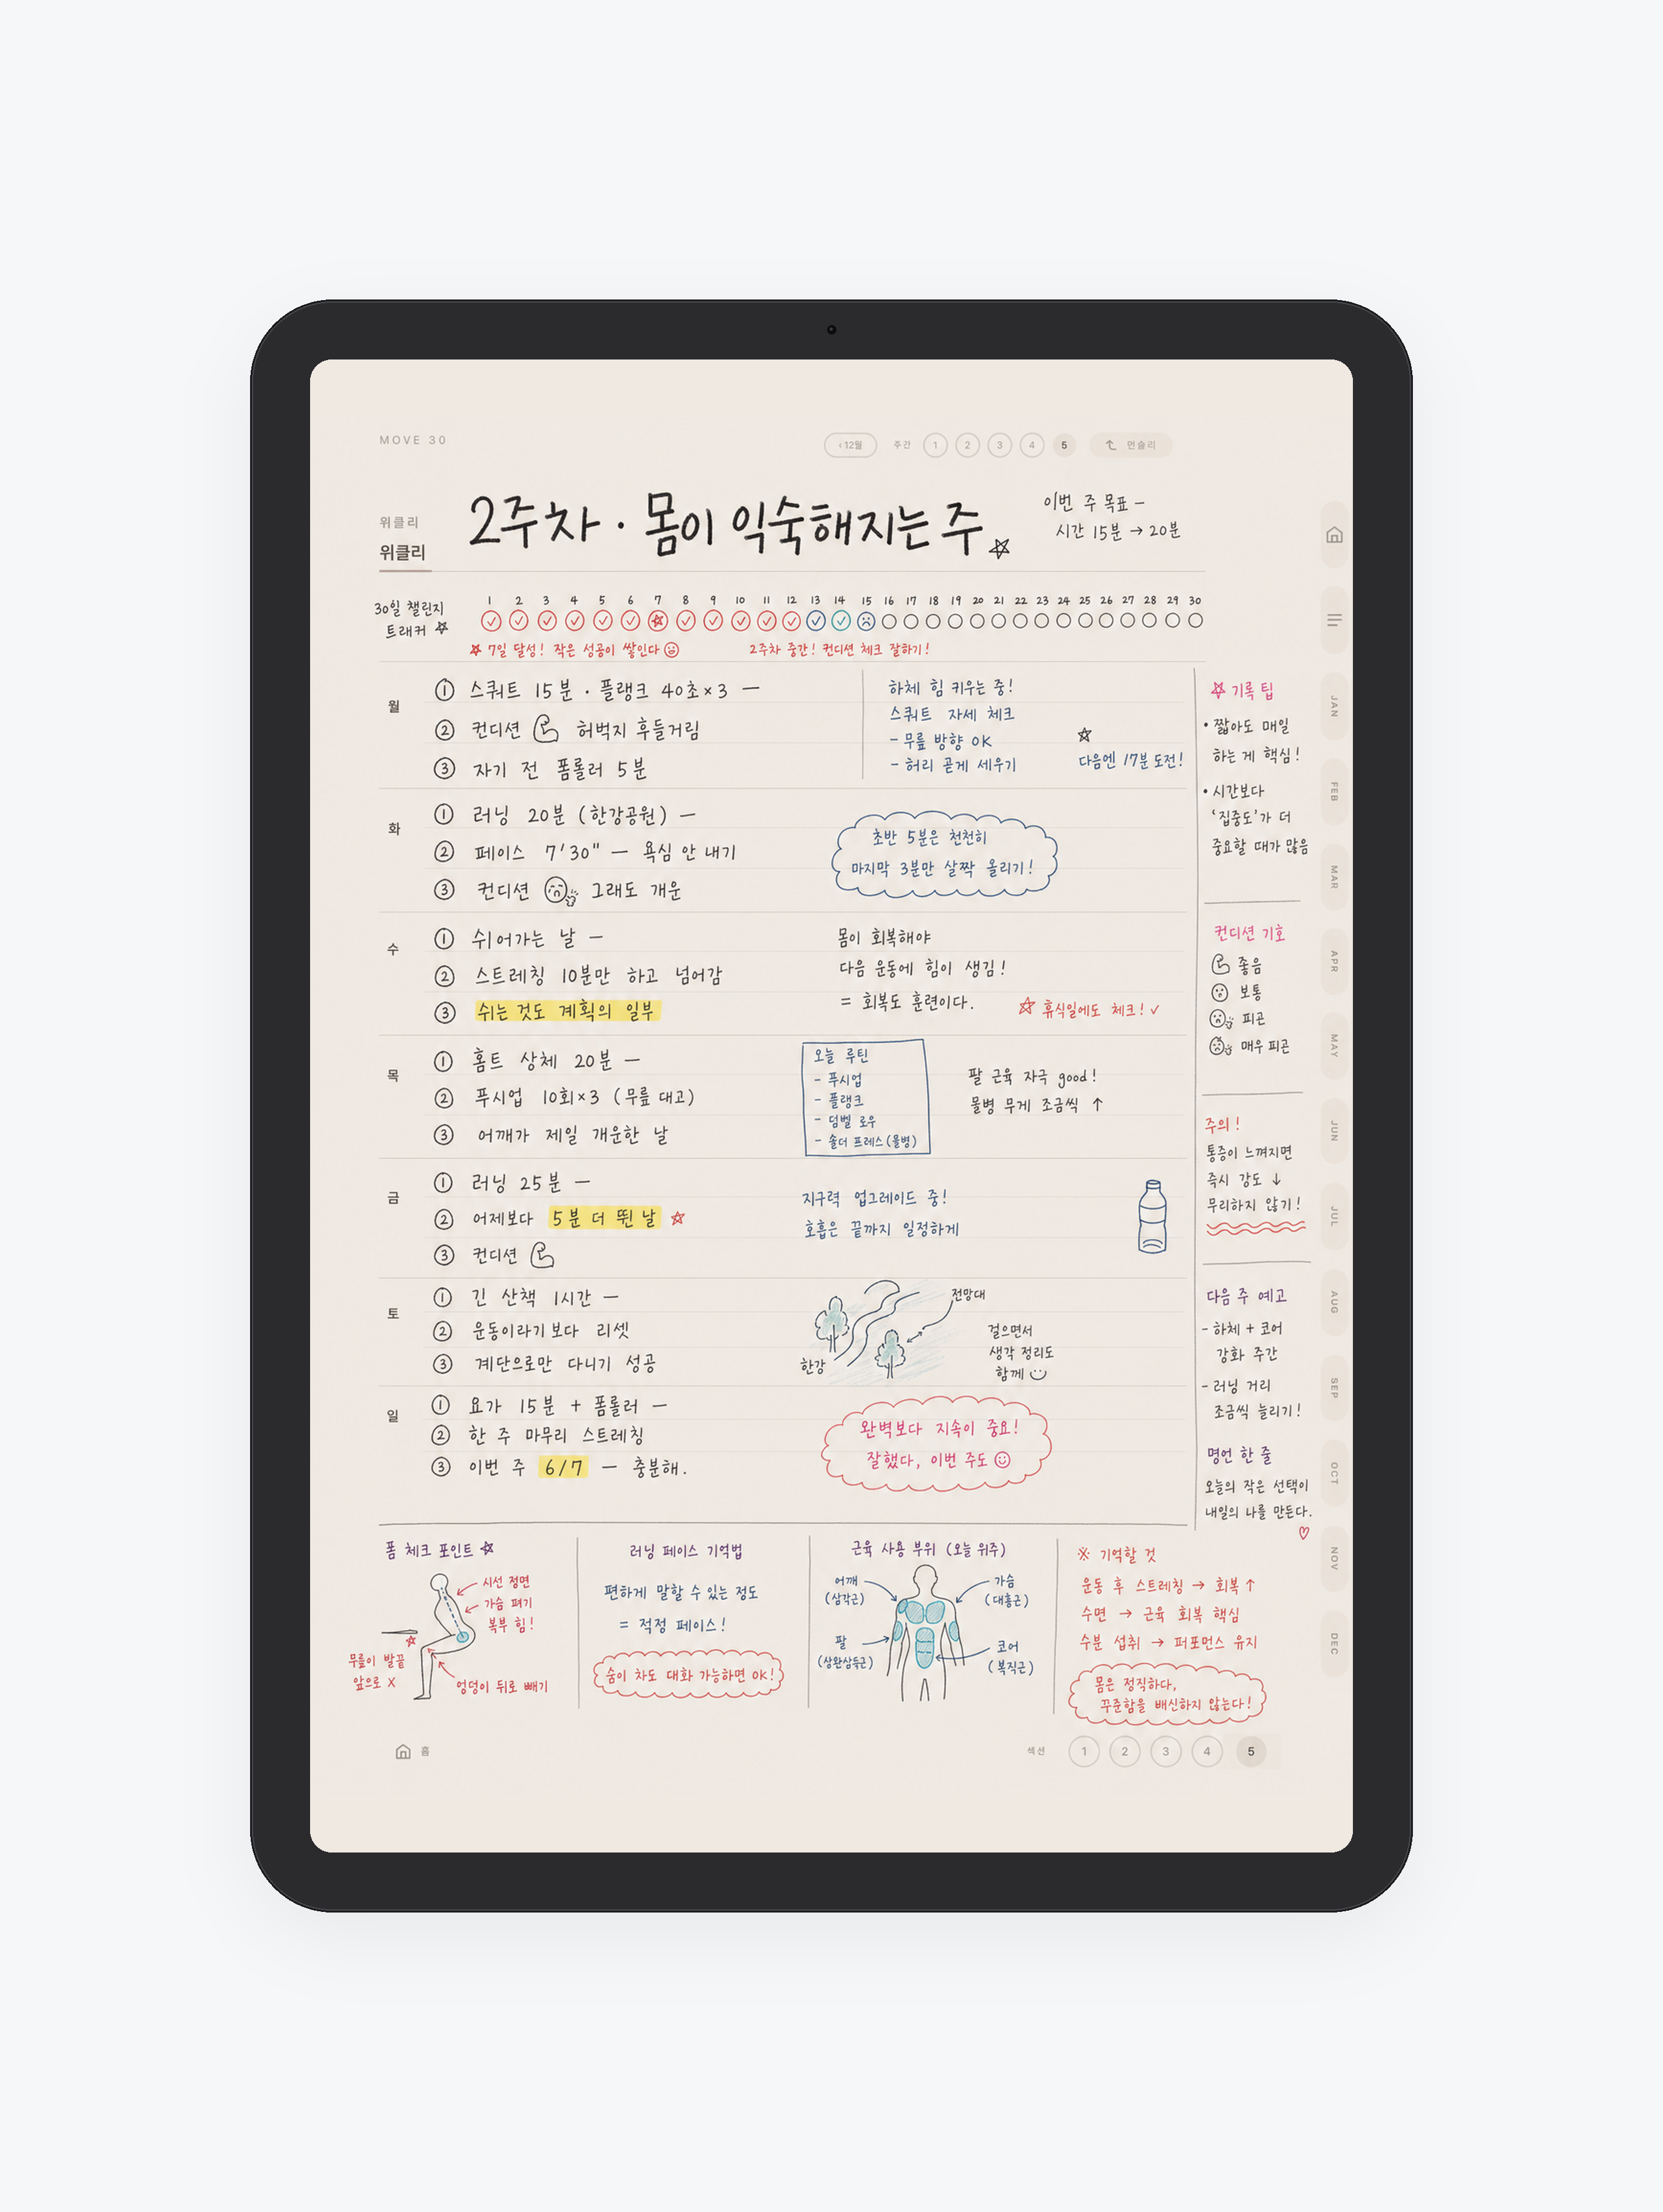 MOVE 30
‹ 12월 주간 1 2 3 4 5 먼슬리
위클리
위클리
2주차 · 몸이 익숙해지는 주
이번 주 목표 –
시간 15분 → 20분
30일 챌린지
트래커
1 2 3 4 5 6 7 8 9 10 11 12 13 14 15 16 17 18 19 20 21 22 23 24 25 26 27 28 29 30
7일 달성! 작은 성공이 쌓인다
2주차 중간! 컨디션 체크 잘하기!
월
① 스쿼트 15분 · 플랭크 40초×3 —
② 컨디션 허벅지 후들거림
③ 자기 전 폼롤러 5분
하체 힘 키우는 중!
스쿼트 자세 체크
- 무릎 방향 OK
- 허리 곧게 세우기
다음엔 17분 도전!
화
① 러닝 20분 (한강공원) —
② 페이스 7'30" — 욕심 안 내기
③ 컨디션 그래도 개운
초반 5분은 천천히
마지막 3분만 살짝 올리기!
수
① 쉬어가는 날 —
② 스트레칭 10분만 하고 넘어감
③ 쉬는 것도 계획의 일부
몸이 회복해야
다음 운동에 힘이 생김!
= 회복도 훈련이다.
☆ 휴식일에도 체크! ✓
목
① 홈트 상체 20분 —
② 푸시업 10회×3 (무릎 대고)
③ 어깨가 제일 개운한 날
오늘 루틴
- 푸시업
- 플랭크
- 덤벨 로우
- 숄더 프레스(물병)
팔 근육 자극 good!
물병 무게 조금씩 ↑
금
① 러닝 25분 —
② 어제보다 5분 더 뛴 날 ☆
③ 컨디션
지구력 업그레이드 중!
호흡은 끝까지 일정하게
토
① 긴 산책 1시간 —
② 운동이라기보다 리셋
③ 계단으로만 다니기 성공
전망대
한강
걸으면서
생각 정리도
함께
일
① 요가 15분 + 폼롤러 —
② 한 주 마무리 스트레칭
③ 이번 주 6/7 — 충분해.
완벽보다 지속이 중요!
잘했다, 이번 주도
☆ 기록 팁
• 짧아도 매일
하는 게 핵심!
• 시간보다
'집중도'가 더
중요할 때가 많음
컨디션 기호
좋음
보통
피곤
매우 피곤
주의!
통증이 느껴지면
즉시 강도 ↓
무리하지 않기!
다음 주 예고
- 하체 + 코어
강화 주간
- 러닝 거리
조금씩 늘리기!
명언 한 줄
오늘의 작은 선택이
내일의 나를 만든다.
폼 체크 포인트 ☆
시선 정면
가슴 펴기
복부 힘!
무릎이 발끝
앞으로 X
엉덩이 뒤로 빼기
러닝 페이스 기억법
편하게 말할 수 있는 정도
= 적정 페이스!
숨이 차도 대화 가능하면 OK!
근육 사용 부위 (오늘 위주)
어깨
(삼각근)
가슴
(대흉근)
팔
(상완삼두근)
코어
(복직근)
※ 기억할 것
운동 후 스트레칭 → 회복 ↑
수면 → 근육 회복 핵심
수분 섭취 → 퍼포먼스 유지
몸은 정직하다,
꾸준함을 배신하지 않는다!
JAN
FEB
MAR
APR
MAY
JUN
JUL
AUG
SEP
OCT
NOV
DEC
홈
섹션 1 2 3 4 5